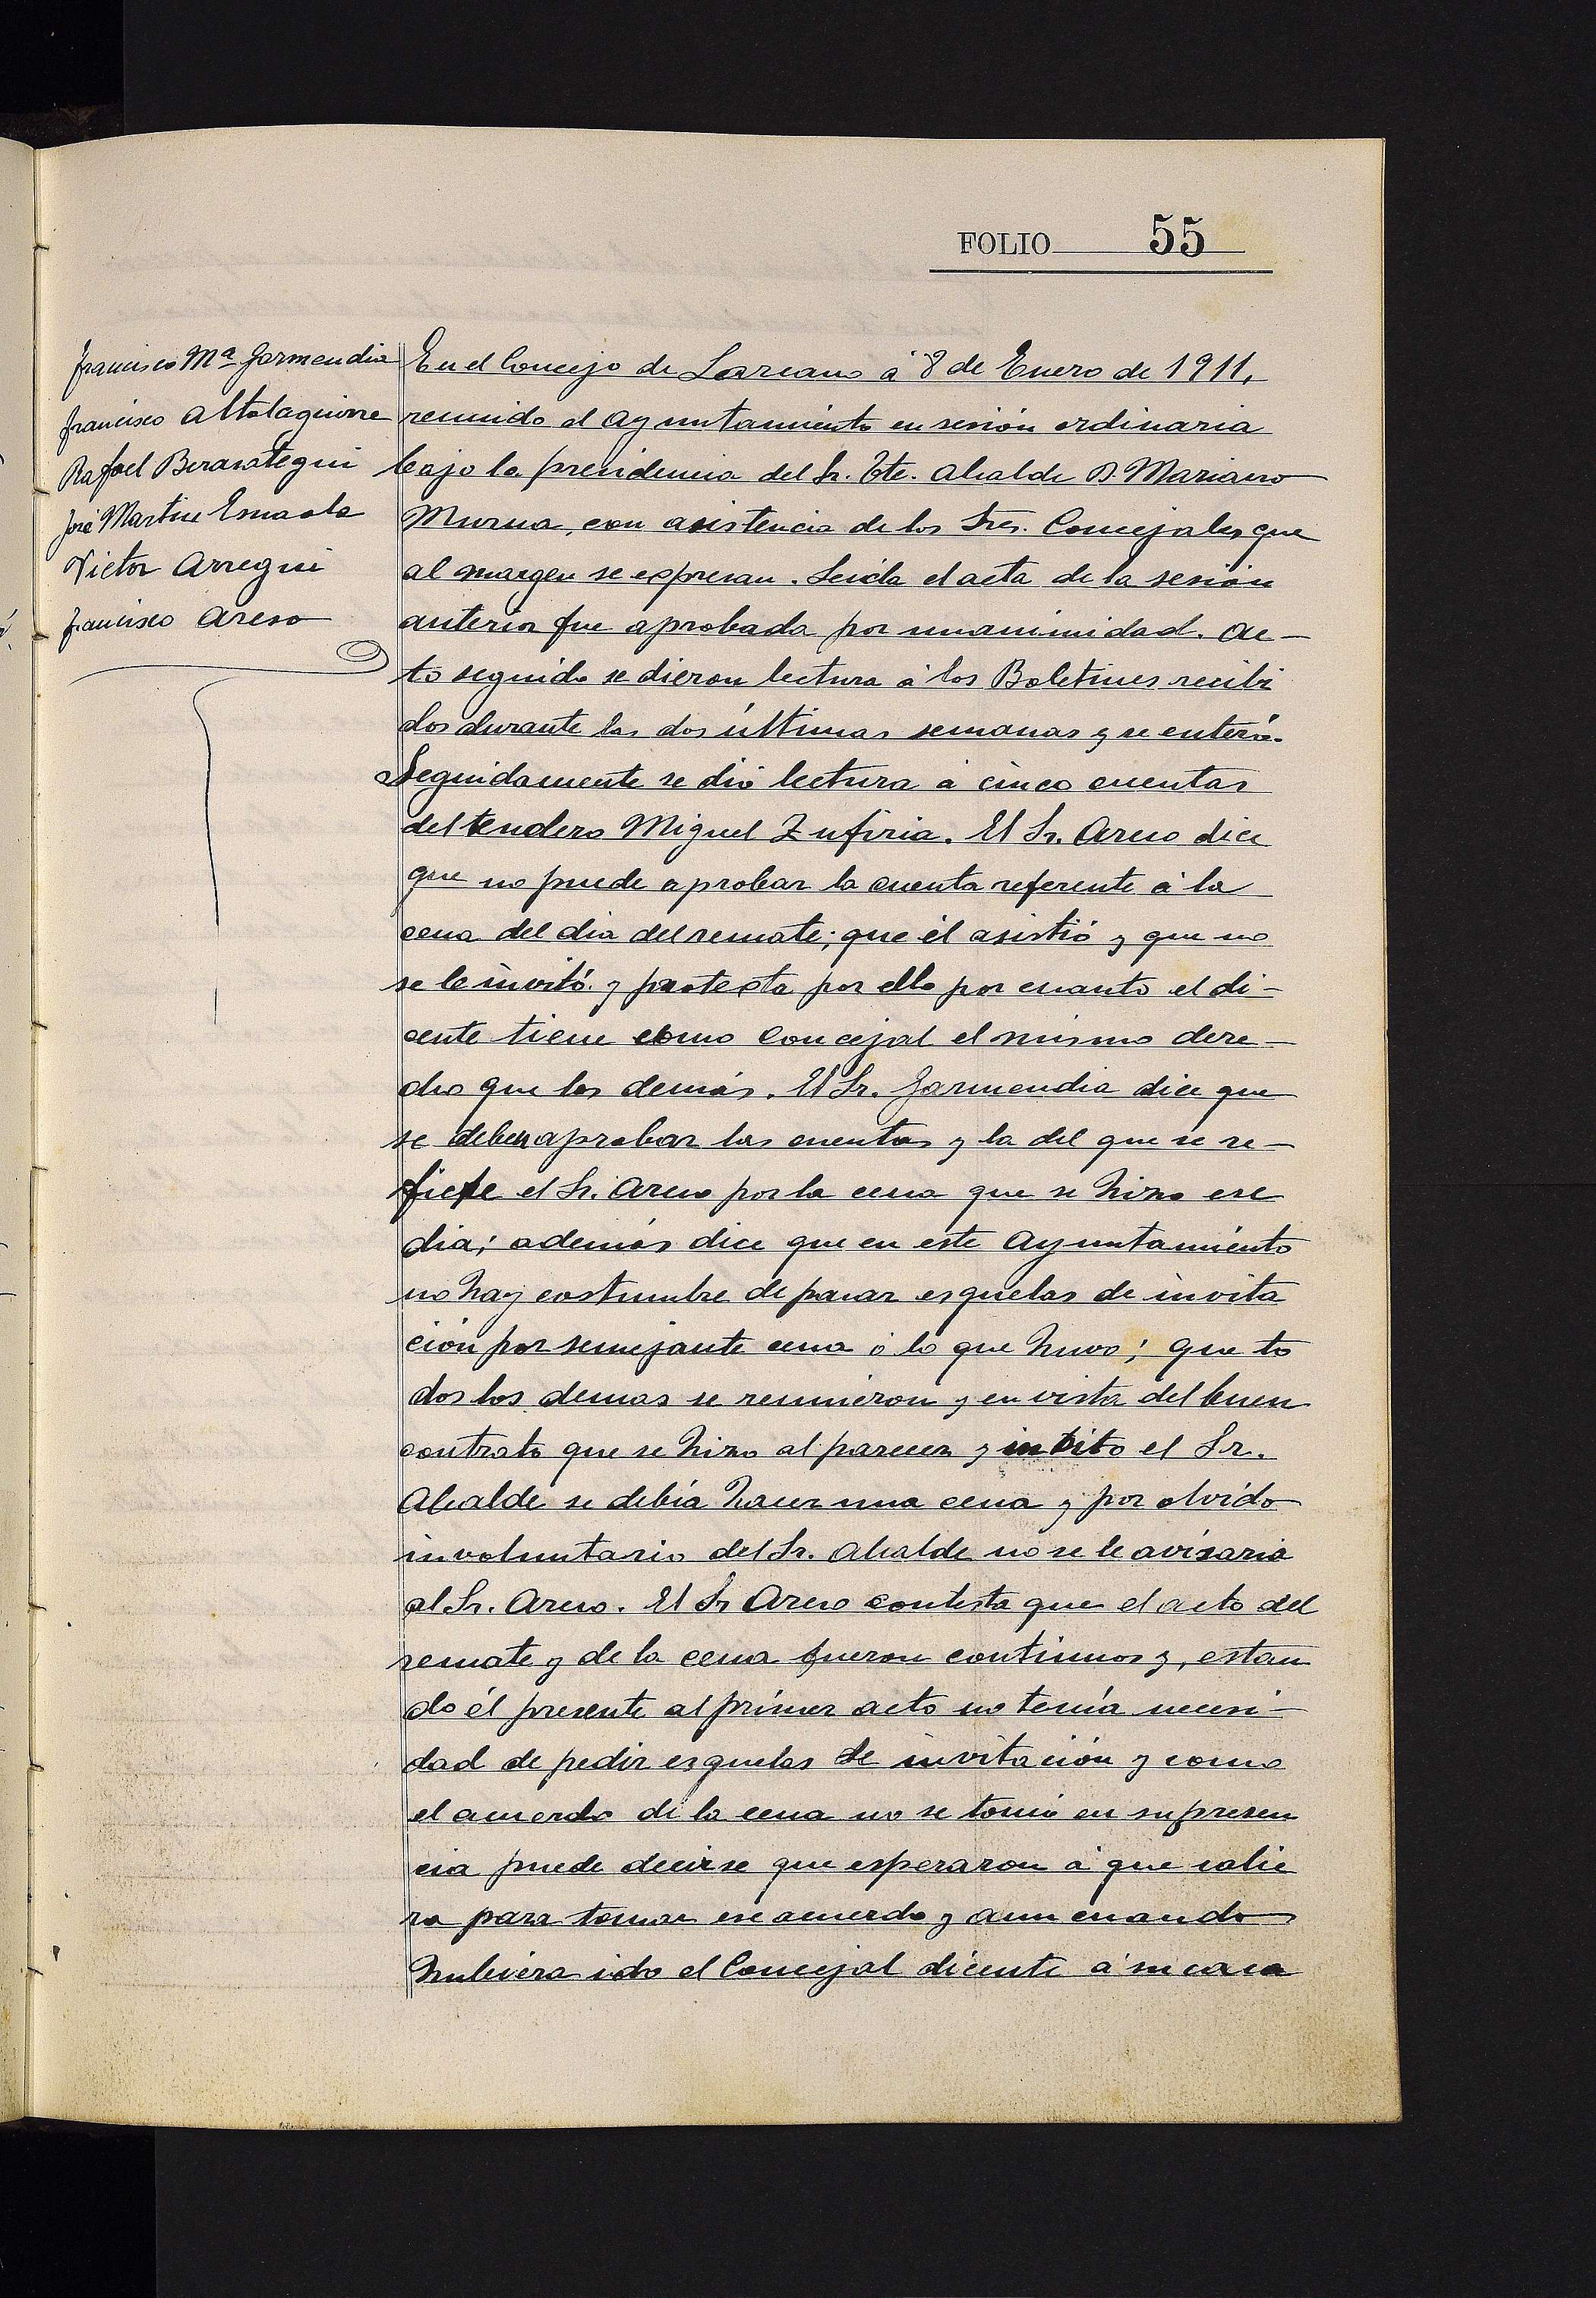 FOLIO 55
Francisco Mª Garmendia
Francisco Altolaguirre
Rafael Berasategui
José Martin Esnaola
Victor Arregui
Francisco Areso
En el Concejo de Lazcano á 8 de Enero de 1911,
reunido el Ayuntamiento en sesión ordinaria
bajo la presidencia del Sr. Tte. Alcalde D. Mariano
Murua, con asistencia de los Sres. Concejales que
al margen se expresan. Leida el acta de la sesión
anterior fue aprobada por unanimidad. Ac-
to seguido se dieron lectura á los Boletines recibi
dos durante las dos últimas semanas y se enteró.
Seguidamente se dió lectura á cinco cuentas
del tendero Miguel Zufiria. El Sr. Areso dice
que no puede aprobar la cuenta referente á la
cena del dia del remate; que él asistió y que no
se le invitó y protesta por ello por cuanto el di-
cente tiene como Concejal el mismo dere-
cho que los demás. El Sr. Garmendia dice que
se deben aprobar las cuentas y la del que se re-
fiere el Sr. Areso por la cena que se hizo ese
dia; además dice que en este Ayuntamiento
no hay costumbre de pasar esquelas de invita
ción por semejante cena ó lo que huvo; que to
dos los demas se reunieron y en vista del buen
contrato que se hizo al parecer y invito el Sr.
Alcalde se debía hacer una cena y por olvido
involuntario del Sr. Alcalde no se le avisaria
al Sr. Areso. El Sr Areso contesta que el acto del
remate y de la cena fueron continuos y, estan
do él presente al primer acto no tenía necesi-
dad de pedir esquelas de invitación y como
el acuerdo de la cena no se tomó en su presen
cia puede decirse que esperaron á que salie
ra para tomar ese acuerdo y aun cuando
hubiera ido el Concejal dicente á su casa